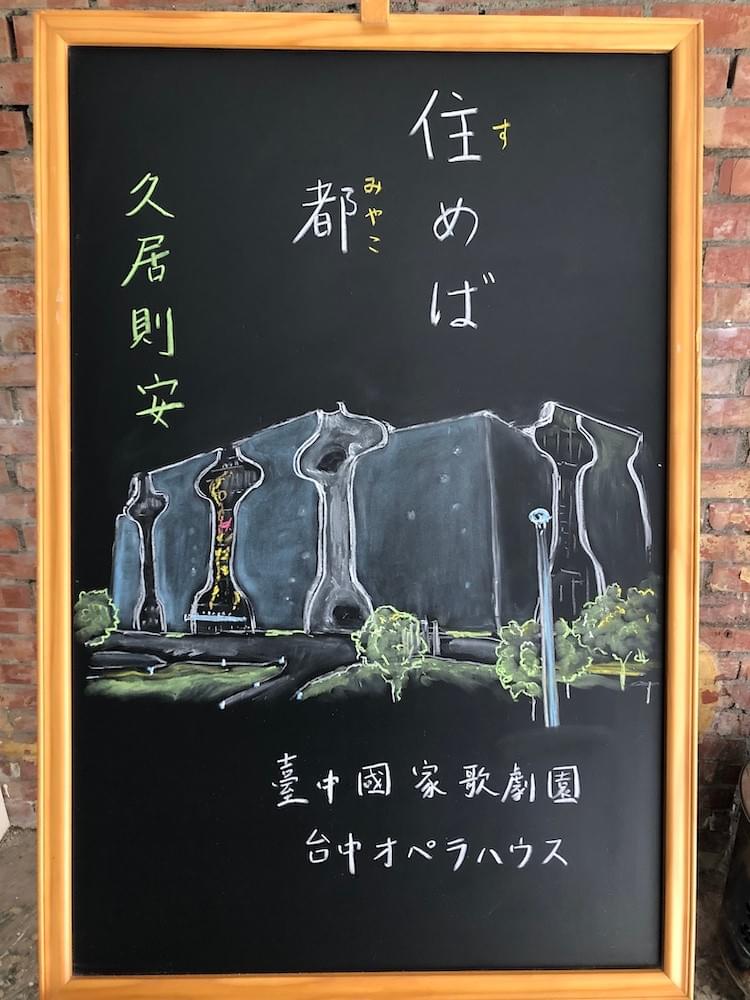 住めば
す
都
みやこ
久居則安
臺中國家歌劇園
台中オペラハウス